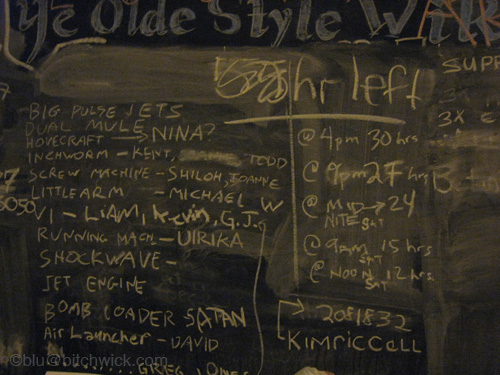 Ye Olde Style
hr left
SUPP
BIG PULSE JETS
DUAL MULE
HOVECRAFT - NINA?
INCHWORM - KENT, TODD
SCREW MACHINE - SHILOH, JOANNE
LITTLE ARM - MICHAEL W
V1 - LIAM, Kevin, G.J.
RUNNING MACH - ULRIKA
SHOCKWAVE -
JET ENGINE
BOMB LOADER SATAN
Air Launcher - DAVID
GREG JONES
3X E
@ 4pm 30 hrs
@ 9pm 27 hrs
@ MID NITE → 24
SAT
@ 9am 15 hrs
SAT
@ NOON 12 hrs
SAT
2081832
KIMRIC CELL
©blu@bitchwick.com